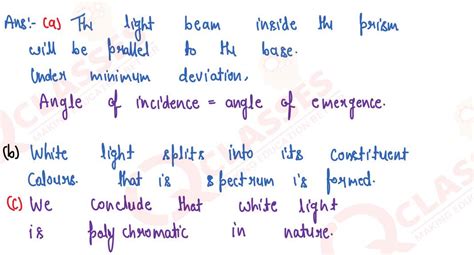 Ans:- (a) The light beam inside the prism
will be prallel to the base.
Under minimum deviation,
Angle of incidence = angle of emergence.
(b) White light splits into its constituent
Colours. that is spectrum is formed.
(c) We conclude that white light
is poly chromatic in nature.
CLASSES
MAKING EDUCATION
CLASSES
MAKING EDUCATION